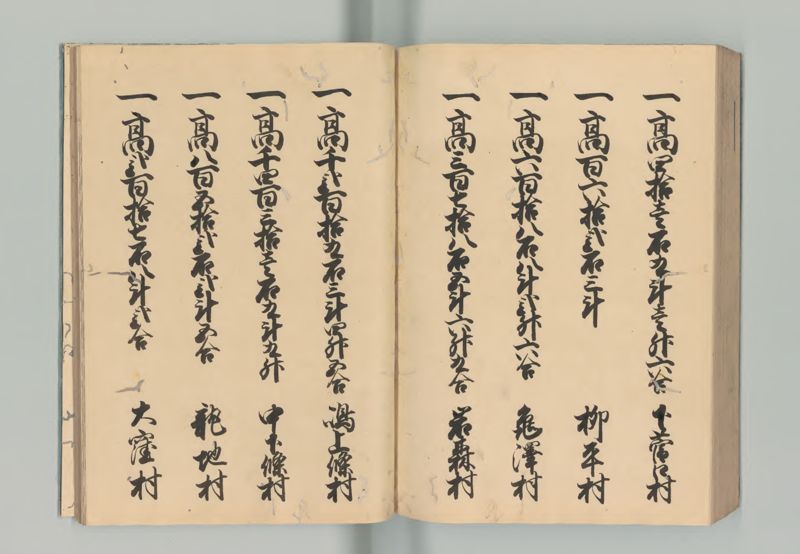 一高四拾壱石九斗壱升六合 下菅口村
一高百六拾弐石三斗 柳平村
一高六百拾八石八斗弐升六合 亀澤村
一高三百七拾八石五斗六升九合 岩森村
一高千弐百拾九石三斗四升五合 嶋上條村
一高千四百三拾壱石九斗九升 中下條村
一高八百五拾弐石弐斗五合 龍地村
一高弐百拾七石八斗弐合 大窪村